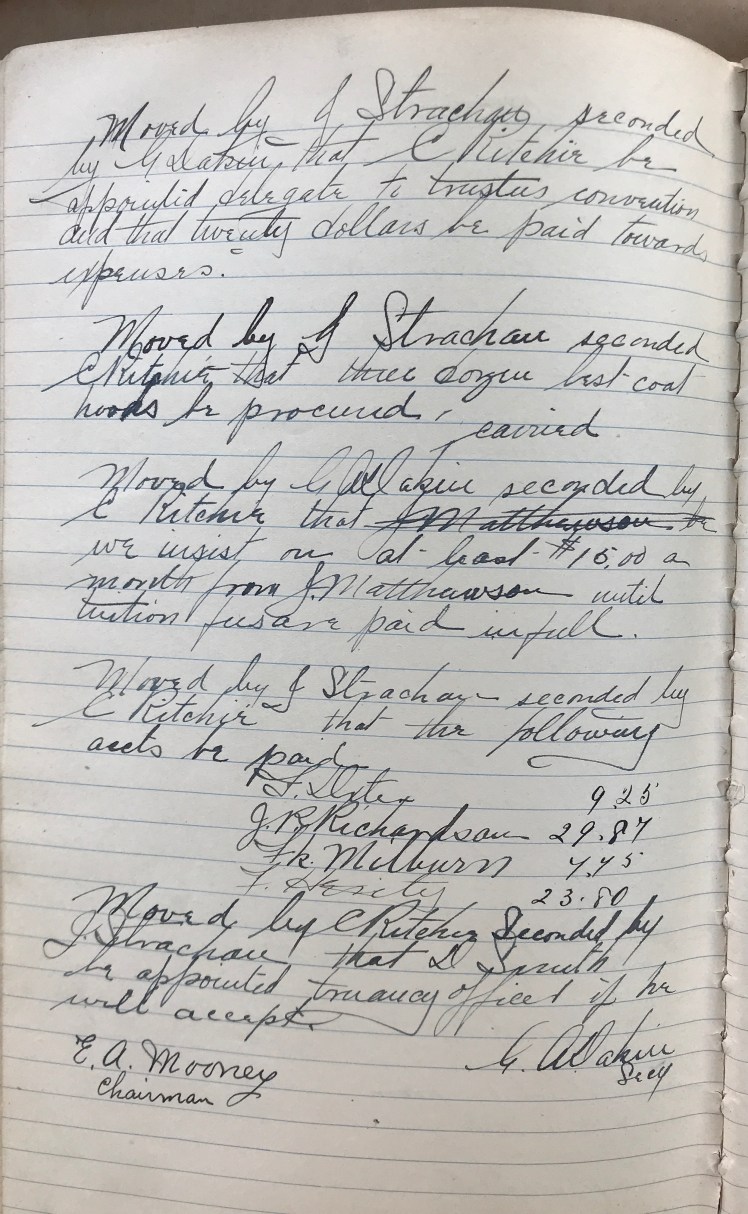 Moved by J Strachan seconded
by G Dakin, that C Ritchie be
appointed delegate to trustees convention
and that twenty dollars be paid towards
expenses.
Moved by J Strachan seconded
C Ritchie that three dozen best coat
hooks be procured, carried
Moved by G A Dakin seconded by
C Ritchie that J Matthewson be
we insist on at least $15.00 a
month from J. Matthewson until
tuition fees are paid in full.
Moved by J Strachan seconded by
C Ritchie that the following
accts be paid
9.25
J. R. Richardson 29.87
Fk. Milburn 7.45
F. 23.80
Moved by C Ritchie Seconded by
J. Strachan that D Smith
be appointed truancy officer if he
will accept.
E. A. Mooney G. A Dakin
Chairman Secy